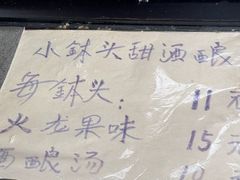 小钵头甜酒酿
每钵头: 11元
火龙果味 15元
酒酿汤 10